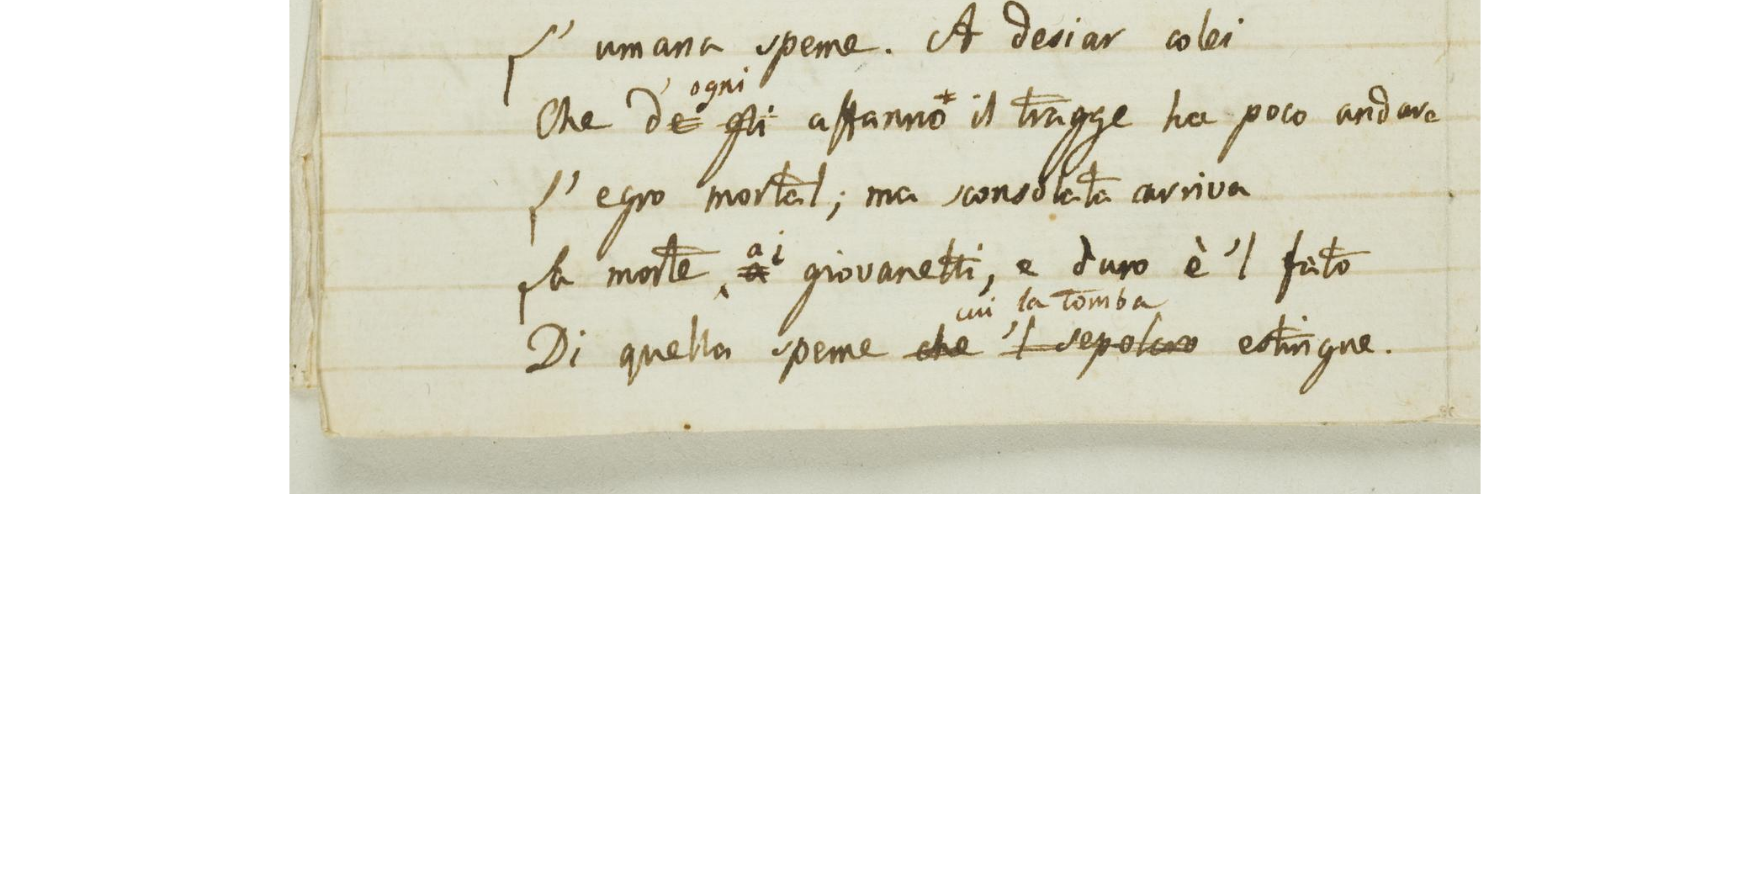 L' umana speme. A desiar colei
ogni
Che de gli affanno il tragge ha poco andare
L' egro mortal; ma sconsolata arriva
ai
La morte a giovanetti, e duro è 'l fato
cui la tomba
Di quella speme che 'l sepolcro estingue.